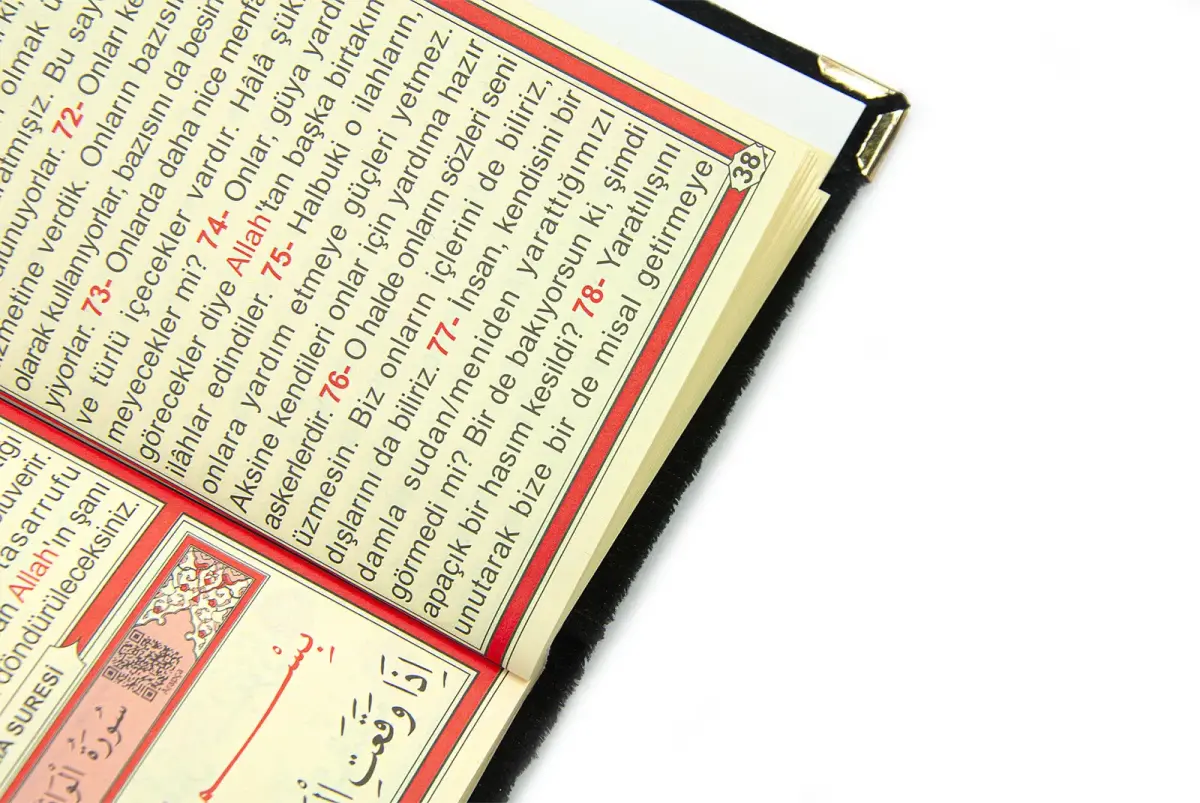 olmak
atmışız. Bu
unuyorlar. 72- Onları
zmetine verdik. Onların bazısın
olarak kullanıyorlar, bazısını da besin
yiyorlar. 73- Onlarda daha nice menfa
ve türlü içecekler vardır. Hâlâ şük
meyecekler mi? 74- Onlar, güya yard
görecekler diye Allah'tan başka birtakım
ilâhlar edindiler. 75- Halbuki o ilahların,
onlara yardım etmeye güçleri yetmez.
Aksine kendileri onlar için yardıma hazır
askerlerdir. 76- O halde onların sözleri seni
üzmesin. Biz onların içlerini de biliriz,
dışlarını da biliriz. 77- İnsan, kendisini bir
damla sudan/meniden yarattığımızı
görmedi mi? Bir de bakıyorsun ki, şimdi
apaçık bir hasım kesildi? 78- Yaratılışını
unutarak bize bir de misal getirmeye
38
tasarrufu
an Allah'ın şanı
döndürüleceksiniz.
A SURESİ
سُورَةُ
Arapça
بِسْمِ
اِذَا وَقَعَتِ